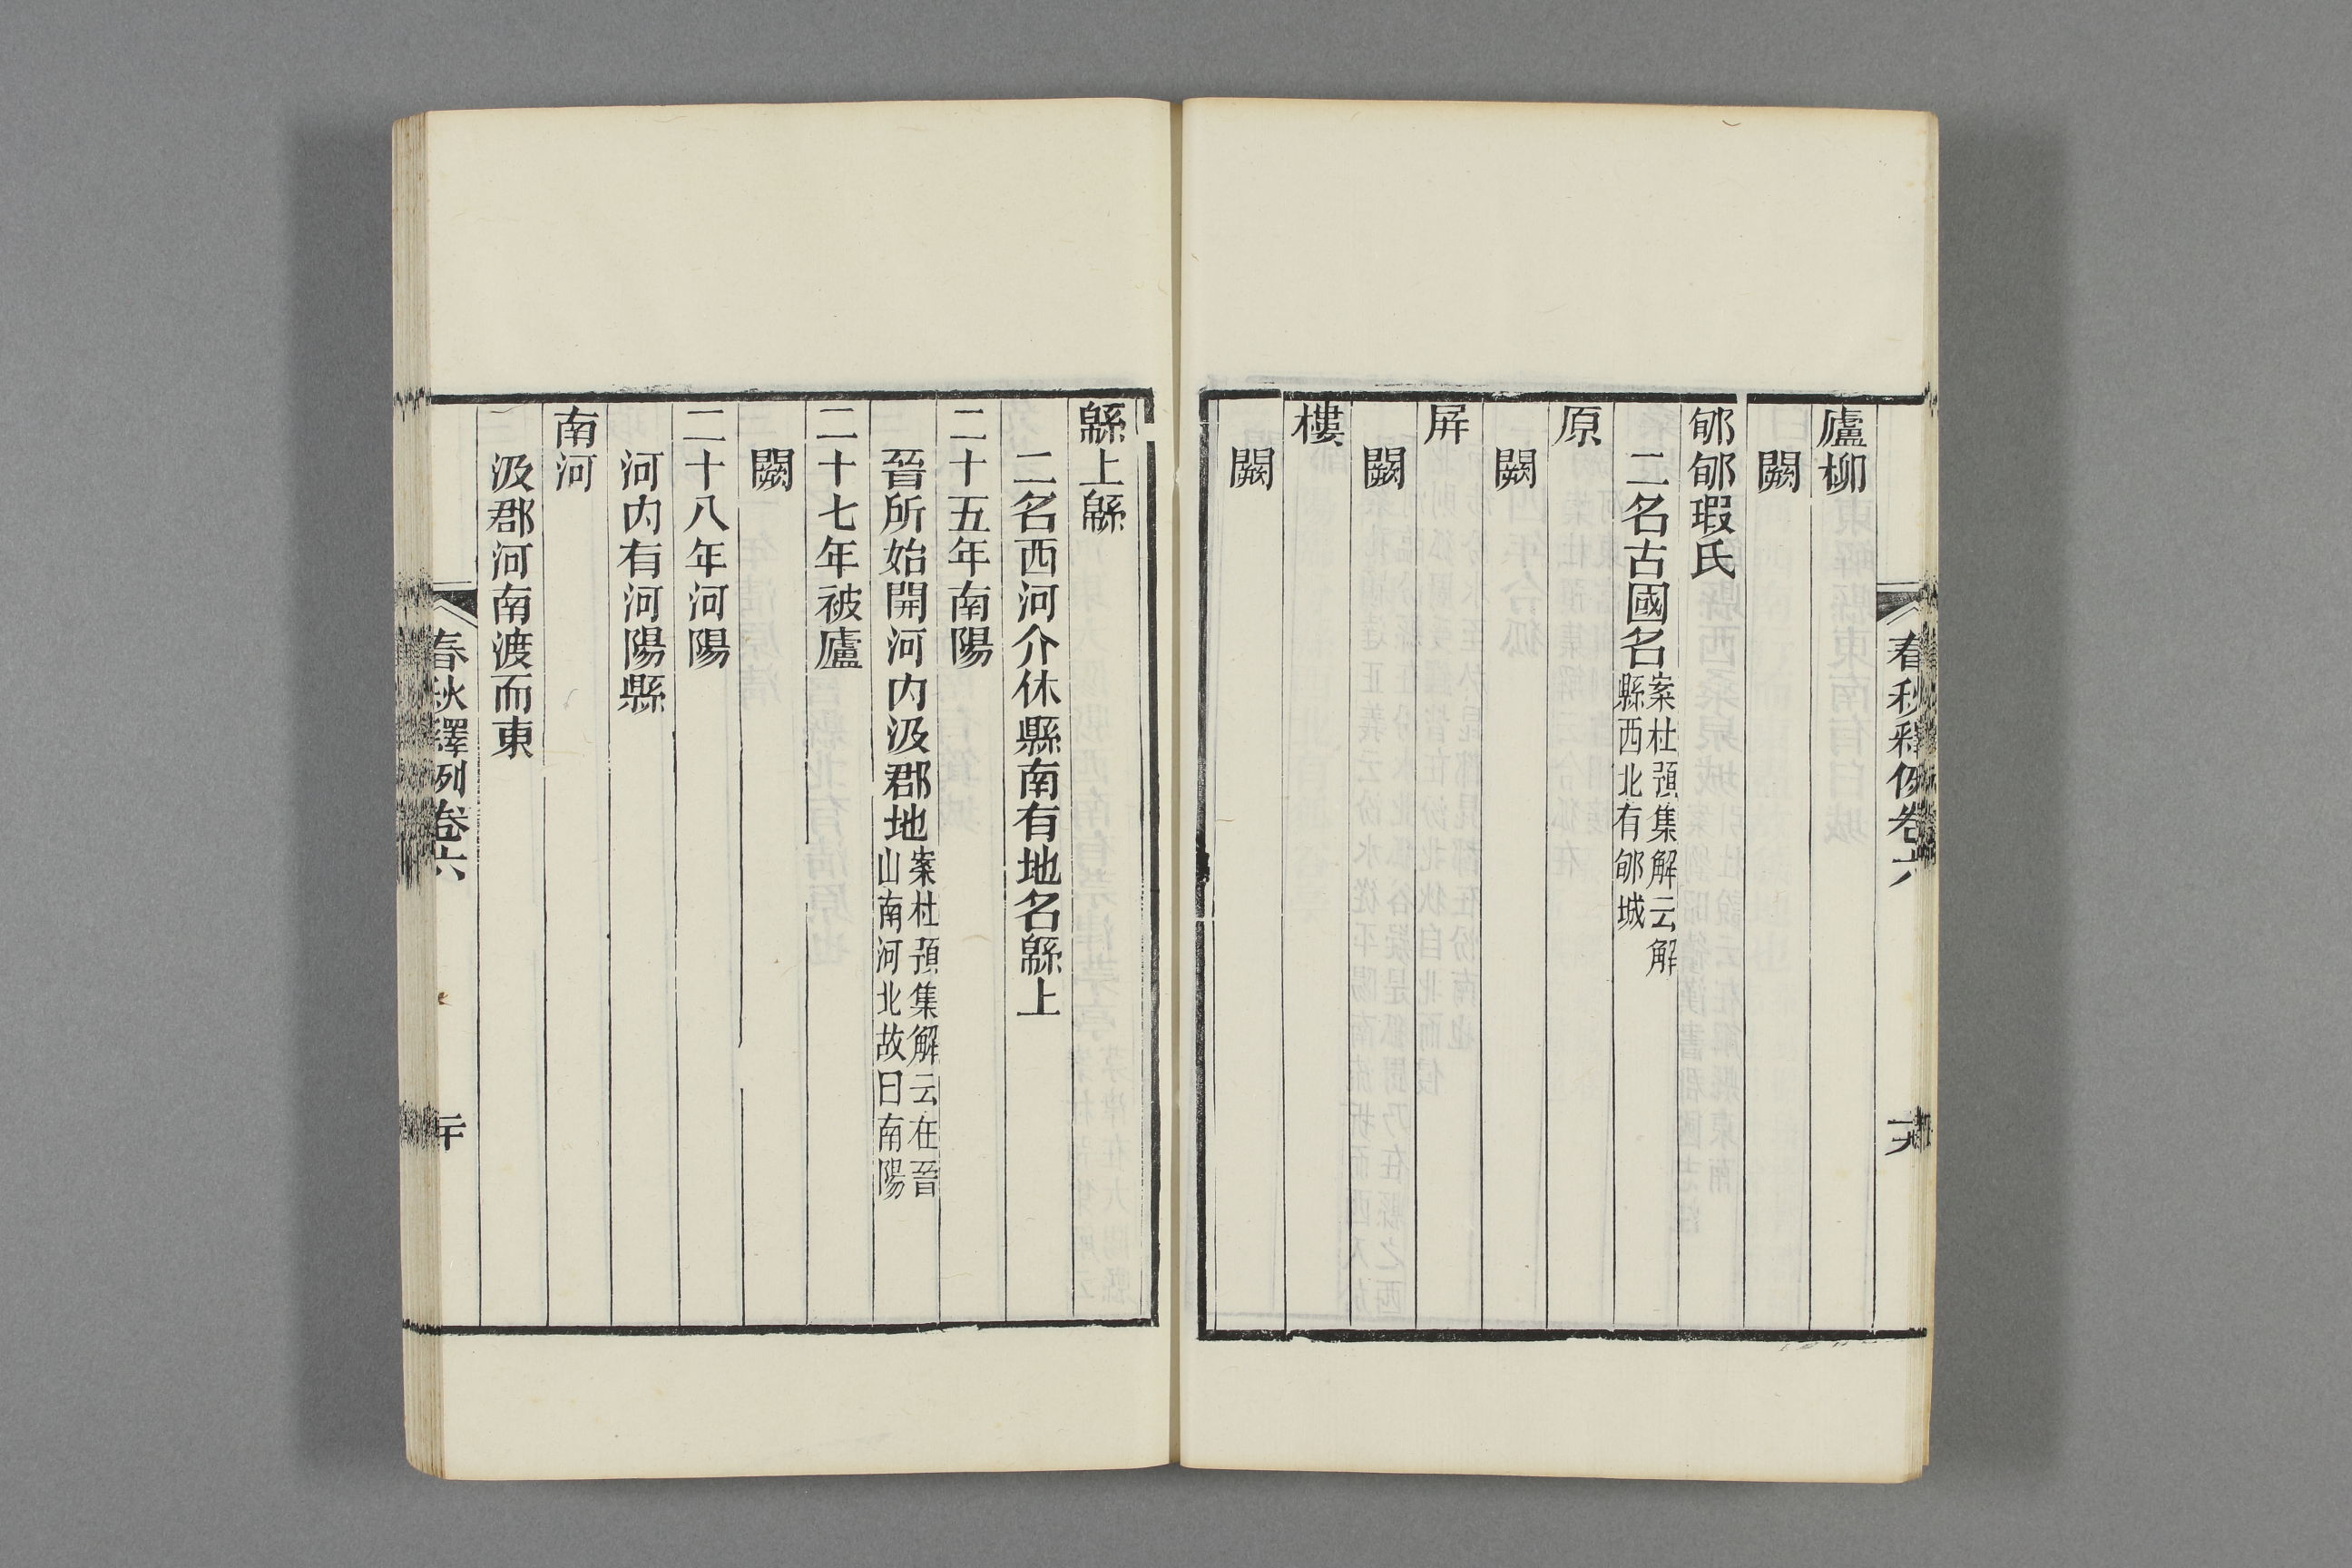 廬柳
闕
郇郇瑕氏
二名古國名案杜預集解云解縣西北有郇城
原
闕
屏
闕
樓
闕
春秋釋例卷六
緜上緜
二名西河介休縣南有地名緜上
二十五年南陽
晉所始開河內汲郡地案杜預集解云在晉山南河北故曰南陽
二十七年被廬
闕
二十八年河陽
河內有河陽縣
南河
汲郡河南渡而東
春秋釋例卷六
二十